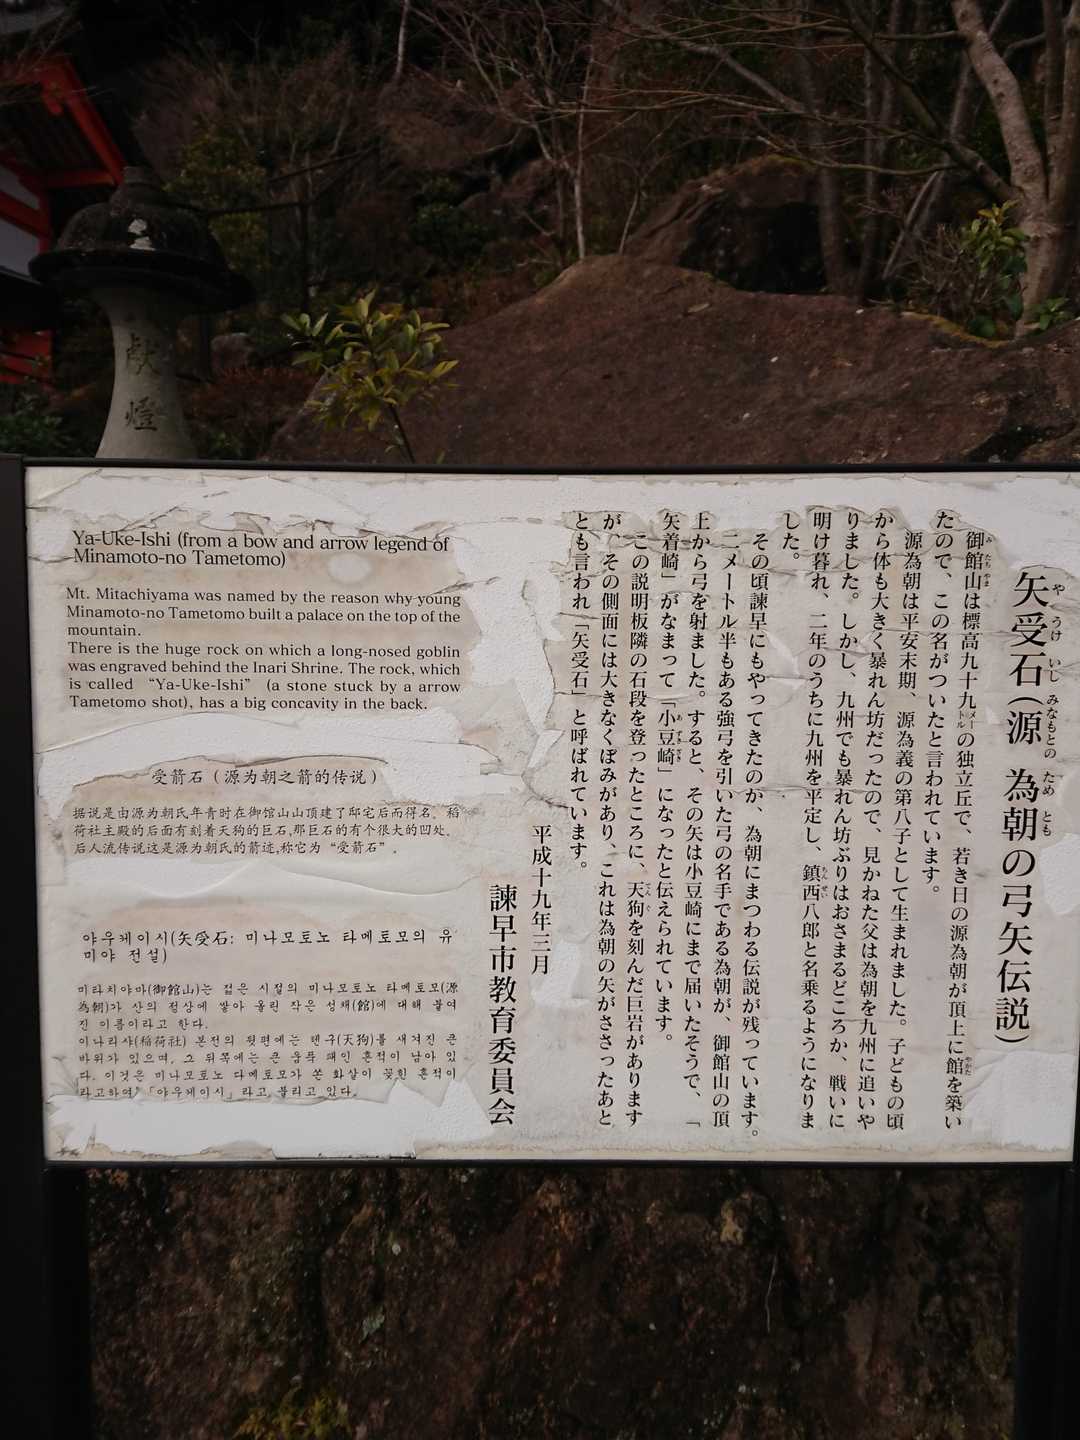 献燈
矢受石(源 為朝の弓矢伝説)
や うけ いし みなもとの ため とも
御館山は標高九十九メートルの独立丘で、若き日の源為朝が頂上に館を築い
み たち やま
やかた
たので、この名がついたと言われています。
源為朝は平安末期、源為義の第八子として生まれました。子どもの頃
から体も大きく暴れん坊だったので、見かねた父は為朝を九州に追いや
りました。しかし、九州でも暴れん坊ぶりはおさまるどころか、戦いに
明け暮れ、二年のうちに九州を平定し、鎮西八郎と名乗るようになりま
ちんぜい
した。
その頃諫早にもやってきたのか、為朝にまつわる伝説が残っています。
二メートル半もある強弓を引いた弓の名手である為朝が、御館山の頂
上から弓を射ました。すると、その矢は小豆崎にまで届いたそうで、「
矢着崎」がなまって「小豆崎」になったと伝えられています。
あ ずき ざき
この説明板隣の石段を登ったところに、天狗を刻んだ巨岩があります
てん ぐ
が、その側面には大きなくぼみがあり、これは為朝の矢がささったあと
とも言われ「矢受石」と呼ばれています。
平成十九年三月
諫早市教育委員会
Ya-Uke-Ishi (from a bow and arrow legend of
Minamoto-no Tametomo)
Mt. Mitachiyama was named by the reason why young
Minamoto-no Tametomo built a palace on the top of the
mountain.
There is the huge rock on which a long-nosed goblin
was engraved behind the Inari Shrine. The rock, which
is called “Ya-Uke-Ishi” (a stone stuck by a arrow
Tametomo shot), has a big concavity in the back.
受箭石（源为朝之箭的传说）
据说是由源为朝氏年青时在御馆山山顶建了邸宅后而得名。稻
荷社主殿的后面有刻着天狗的巨石,那巨石的有个很大的凹处。
后人流传说这是源为朝氏的箭迹,称它为“受箭石”。
야우케이시(矢受石: 미나모토노 타메토모의 유
미야 전설)
미타치야마(御館山)는 젊은 시절의 미나모토노 타메토모(源
為朝)가 산의 정상에 쌓아 올린 작은 성채(館)에 대해 붙여
진 이름이라고 한다.
이나리샤(稲荷社) 본전의 뒷편에는 텐구(天狗)를 새겨진 큰
바위가 있으며, 그 뒤쪽에는 큰 움푹 패인 흔적이 남아 있
다. 이것은 미나모토노 다메토모가 쏜 화살이 꽂힌 흔적이
라고하여「야우케이시」라고 불리고 있다.